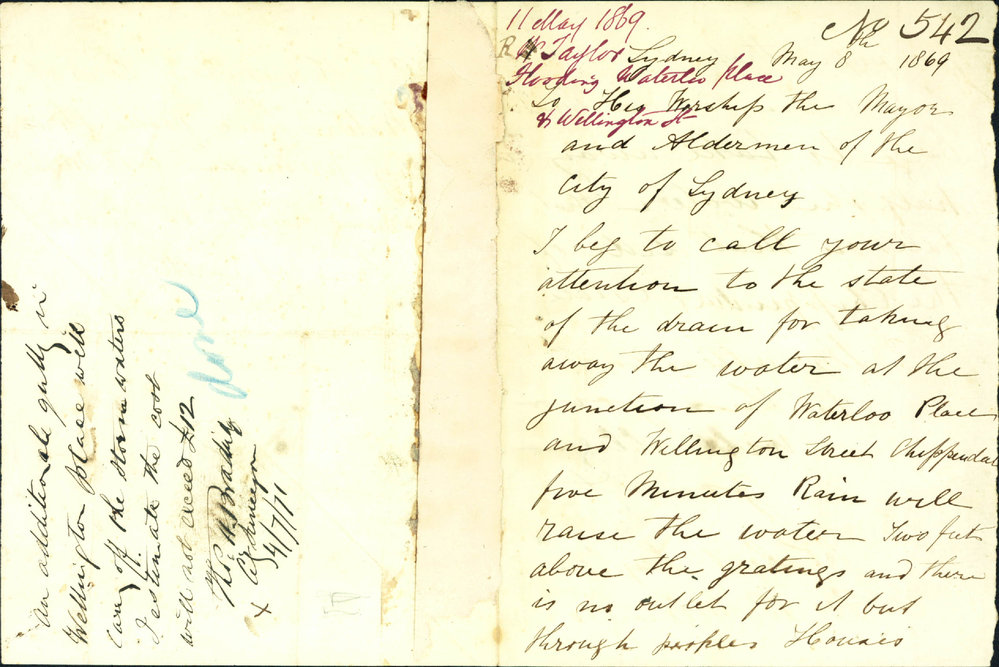 An additionale gully in
Wellington place will
carry off the storm waters
I estimate the cost
will not exceed £12
Bradridge
City Surveyor
14/7/71
done
No 542
11 May 1869.
W Taylor
Flooding Waterloo place
& Wellington St
Sydney May 8th 1869
To His Worship the Mayor
and Aldermen of the
City of Sydney
I beg to call your
attention to the state
of the drain for taking
away the water at the
junction of Waterloo Place
and Wellington Street Chippendale
five Minutes Rain will
raise the water Two feet
above the gratings and there
is no outlet for it but
through peoples Houses